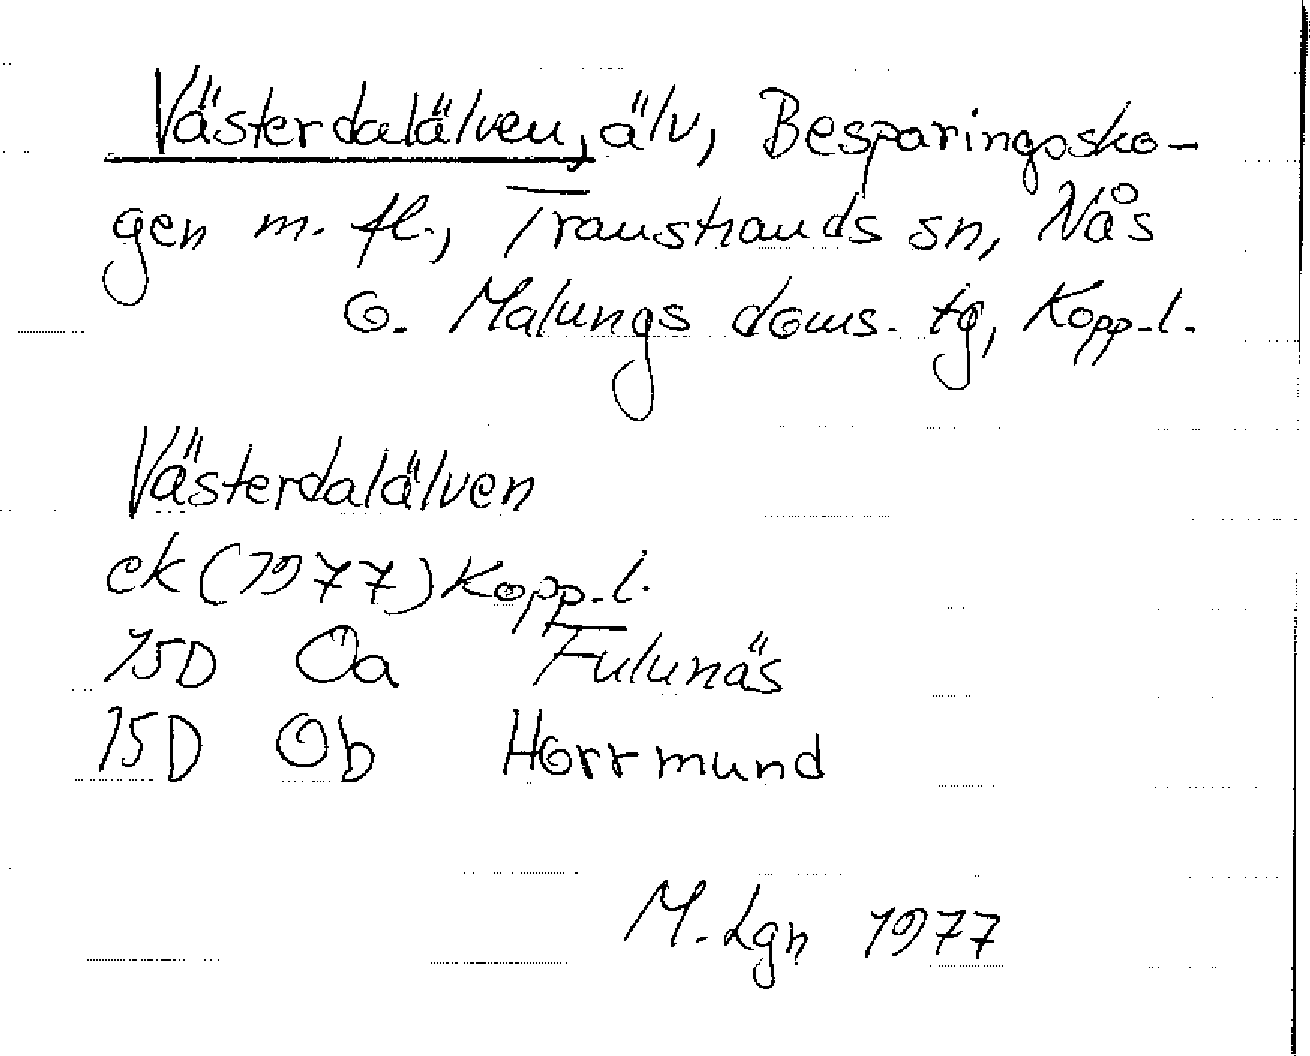 Västerdalälven, älv, Besparingssko-
gen m. fl., Transtrands sn, Nås
o. Malungs doms. tg, Kopp. l.
Västerdalälven
ek (1977) Kopp. l.
15D Oa Fulunäs
15D Ob Horrmund
M. Lgn 1977